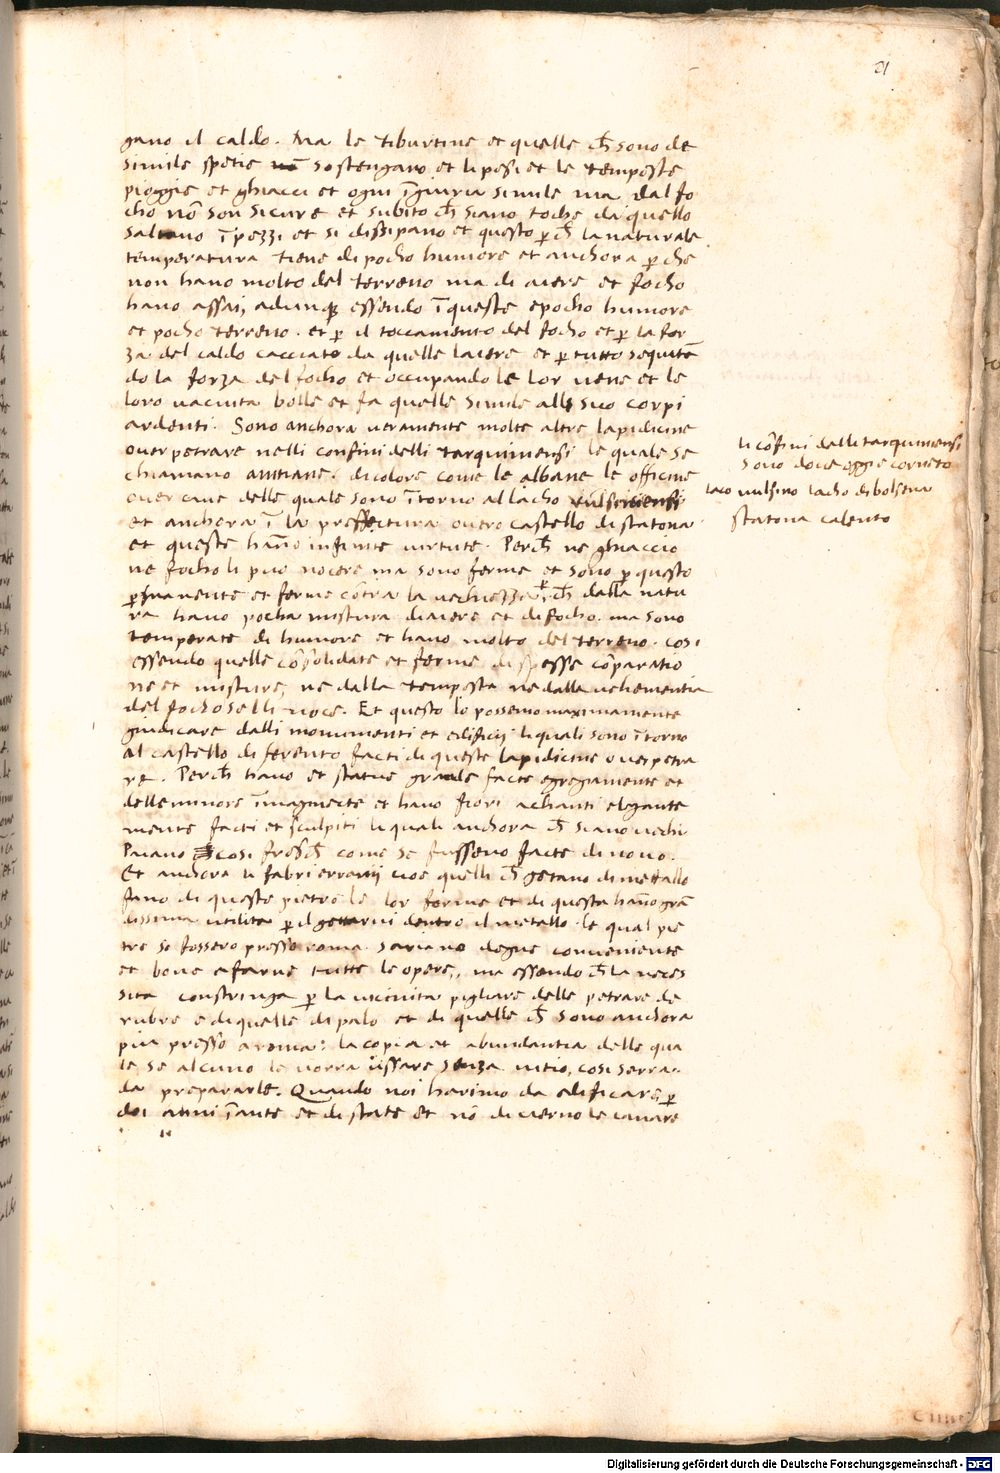 21
gano il caldo. Ma le tiburtine et quelle ch̄ sono de
simile spetie sostengano et li pesi et le tempeste
pioggie et ghiacci et ogni īgiuria simile ma dal fo
cho nō son sicure et subito ch̄ siano toche da quello
saltano ī pezzi et si dissipano et questo ꝑch̄ la naturale
temperatura tiene di pocho humore et anchora ꝑ che
non hano molto del terreno ma di aiere et focho
hano assai, adunqꝫ essendo ī queste epocho humore
et pocho terreno. et ꝑ il toccamento del focho et ꝑ la for
za del caldo cacciato da quelle laiere et ꝑ tutto sequitā
do la forza del focho et occupando le lor uene et le
loro uacuita bolle et fa quelle simile alli suo corpi
ardenti. Sono anchora ueramente molte altre lapidicine
ouer petrare nelli confini delli tarquiniensi le quale se
chiamano anitiane: di colore come le albane le officine
ouer caue delle quale sono ītorno al lacho uulsiniensi
et anchora ī la prefectura ouero castello di statona
et queste hāno infinite uirtute. Perch̄ ne ghiaccio
ne focho li puo nocere ma sono ferme et sono ꝑ questo
ꝑmanente et ferme cōtra la uechiezza, ꝑch̄ dalla natu
ra hano pocha mistura di aiere et di focho. ma sono
temperate di humore et hano molto del terreno. cosi
essendo quelle cōsolidate et ferme di spesse cōparatio
ne et misture, ne dalla tempesta ne dalla uehementia
del focho se lli noce. Et questo lo possemo maximamente
giudicare dalli monumenti et edificij li quali sono ītorno
al castello di ferento facti di queste lapidicine ouer petra
re. Perch̄ hano et statue grande facte egregiamente et
delle minore īmaginecte et hano fiori achanti elegante
mente facti et sculpiti li quali anchora ch̄ siano uechi
Paiano cosi fresch̄ come se fusseno facte di nouo.
Et anchora li fabri errarij cioe quelli ch̄ getano di mettallo
fano di queste pietre le lor forme et di questa hāno grā
dissima utilita ꝑ il gettarui dentro il metallo. le qual pie
tre se fossero presso roma. sariano degne conueniente
et bone a farne tutte le opere, ma essendo ch̄ la neces
sita constringa ꝑ la uicinita pigliare delle petrare de
rubre e di quelle di palo et di quelle ch̄ sono anchora
piu presso a roma: la copia et abundantia delle qua
le, se alcuno le uorra ussare senza uitio, cosi serra
da prepararle. Quando noi harimo da edificare, ꝑ
doi anni īante et di state et nō di uerno le cauare
li cōfini delli tarquiniensi
sono doue oggie corneto
laco uulsino lacho di bolsena
statona
Digitalisierung gefördert durch die Deutsche Forschungsgemeinschaft - DFG